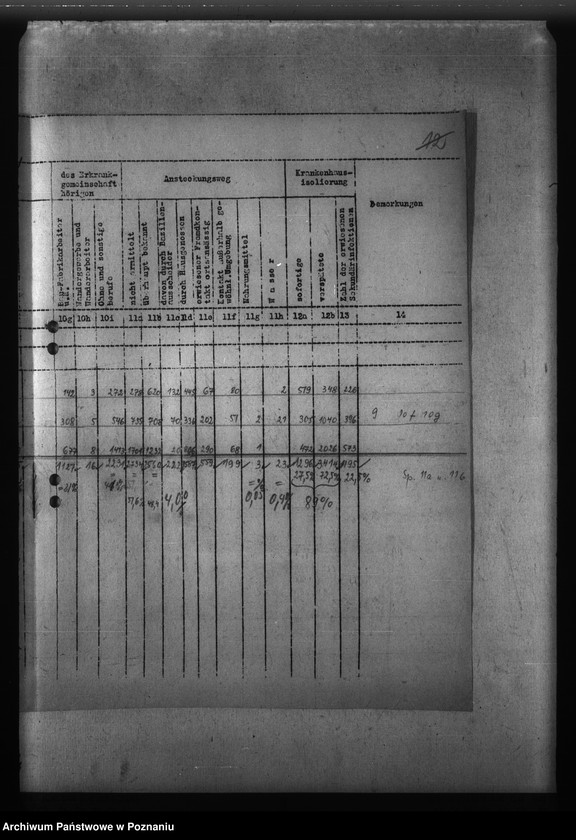 12
des Erkrank-
gemeinschaft
hörigen
Ansteckungsweg
Krankenhaus-
isolierung
Bemerkungen
Wandergewerbe und
Wanderarbeiter
Ohne und sonstige
Berufe
nicht ermittelt
überhaupt bekannt
davon durch Bazillen-
ausscheider
durch Hausgenossen
erwiesener Fremdkon-
Kontakt außerhalb ge-
wöhnl. Umgebung
Nahrungsmittel
Wasser
sofortige
verspätete
Zahl der erwiesenen
Sekundärinfektionen
10g 10h 10i 11a 11b 11c 11d 11e 11f 11g 11h 12a 12b 13 14
142 3 272 278 620 132 445 67 80 2 519 348 226
308 5 546 735 708 70 336 202 57 2 21 305 1040 396
677 8 1413 20 290 68 1 472 2026 573
1127 16 2231 222 559 199 3 23 1296 3414 1195
27,5% 72,5% 22,8%
4,0% 0,05 0,4% 89%
Sp. 11a u. 11b
Archiwum Państwowe w Poznaniu